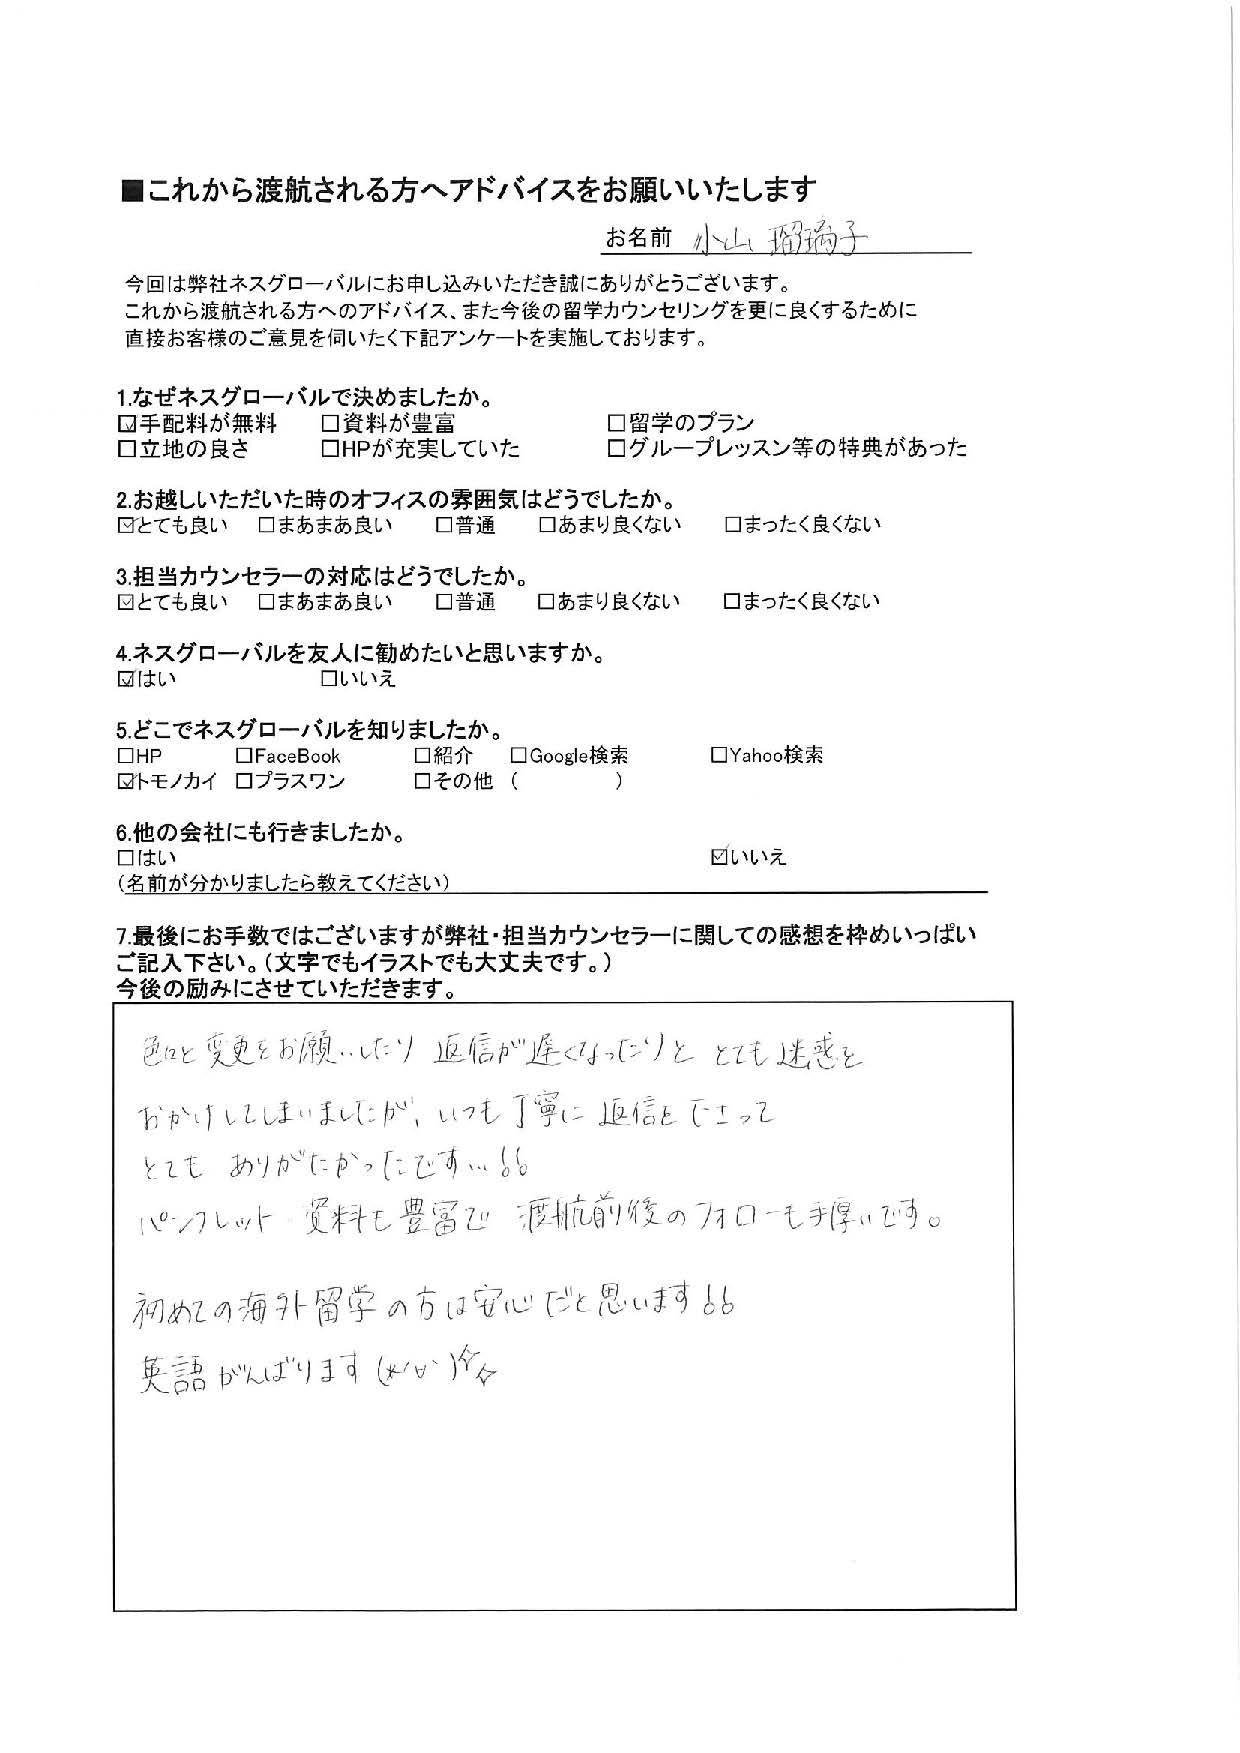 ■これから渡航される方へアドバイスをお願いいたします
お名前 小山 瑠璃子
今回は弊社ネスグローバルにお申し込みいただき誠にありがとうございます。
これから渡航される方へのアドバイス、また今後の留学カウンセリングを更に良くするために
直接お客様のご意見を伺いたく下記アンケートを実施しております。
1.なぜネスグローバルで決めましたか。
☑手配料が無料 □資料が豊富 □留学のプラン
□立地の良さ □HPが充実していた □グループレッスン等の特典があった
2.お越しいただいた時のオフィスの雰囲気はどうでしたか。
☑とても良い □まあまあ良い □普通 □あまり良くない □まったく良くない
3.担当カウンセラーの対応はどうでしたか。
☑とても良い □まあまあ良い □普通 □あまり良くない □まったく良くない
4.ネスグローバルを友人に勧めたいと思いますか。
☑はい □いいえ
5.どこでネスグローバルを知りましたか。
□HP □FaceBook □紹介 □Google検索 □Yahoo検索
☑トモノカイ □プラスワン □その他 ( )
6.他の会社にも行きましたか。
□はい ☑いいえ
(名前が分かりましたら教えてください)
7.最後にお手数ではございますが弊社・担当カウンセラーに関しての感想を枠めいっぱい
ご記入下さい。(文字でもイラストでも大丈夫です。)
今後の励みにさせていただきます。
色々と変更をお願いしたり 返信が遅くなったりと とても迷惑を
おかけしてしまいましたが、いつも丁寧に返信を下さって
とても ありがたかったです…!!
パンフレット 資料も豊富で 渡航前後のフォローも手厚いです。
初めての海外留学の方は安心だと思います!!
英語がんばります(*'∀')☆☆